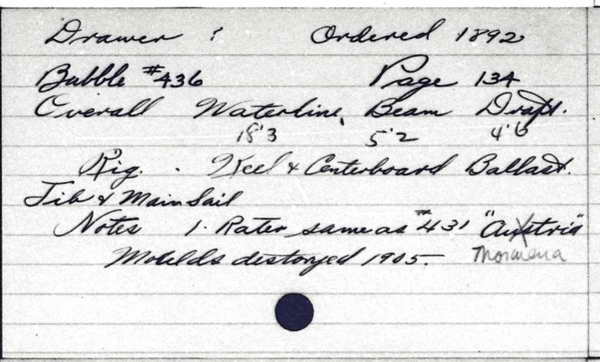 Drawer ? Ordered 1892
Bubble #436 Page 134
Overall Waterline Beam Draft.
18'3 5'2 4'6
Rig. Keel & Centerboard Ballast.
Jib & MainSail
Notes 1. Rater same as #431 "Austria"
Moulds destoryed 1905.